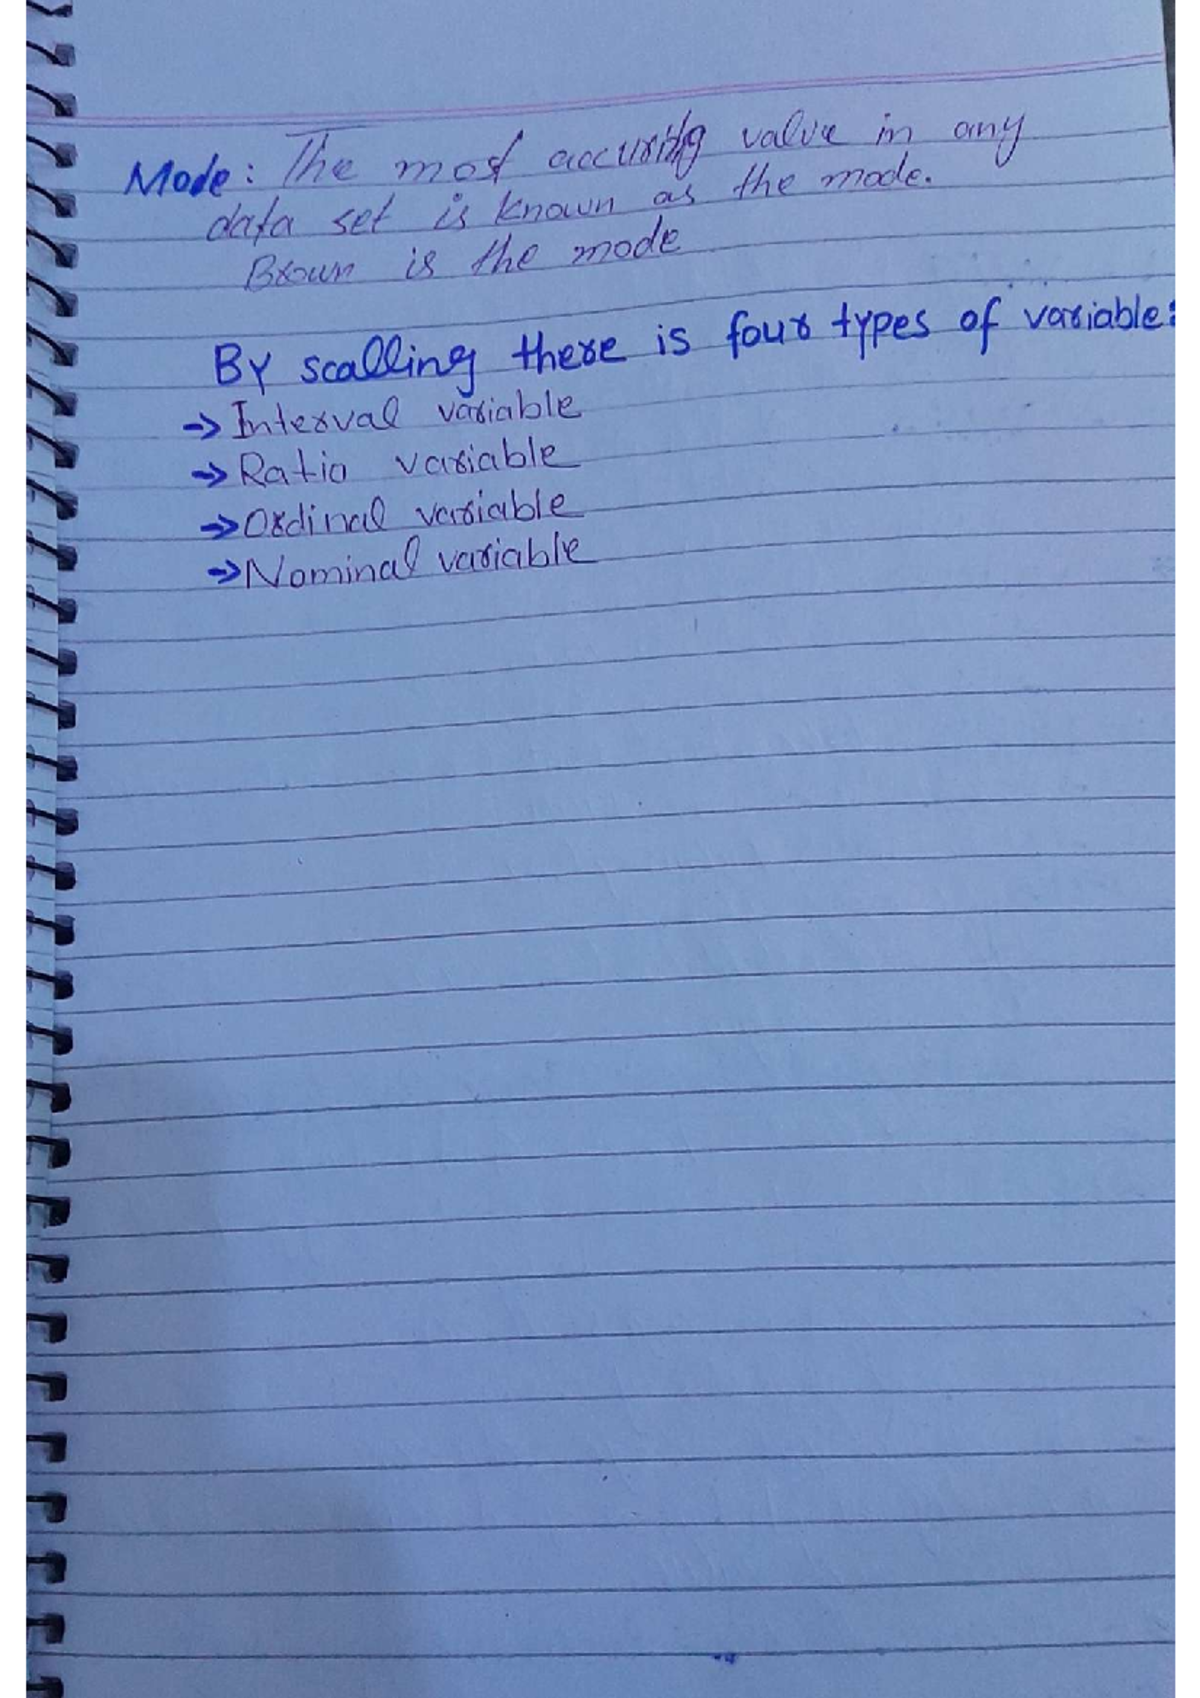 Mode: The most accuring value in any
data set is known as the mode.
Brown is the mode
By scalling there is four types of variable:
→ Interval variable
→ Ratio variable
→ Ordinal variable
→ Nominal variable